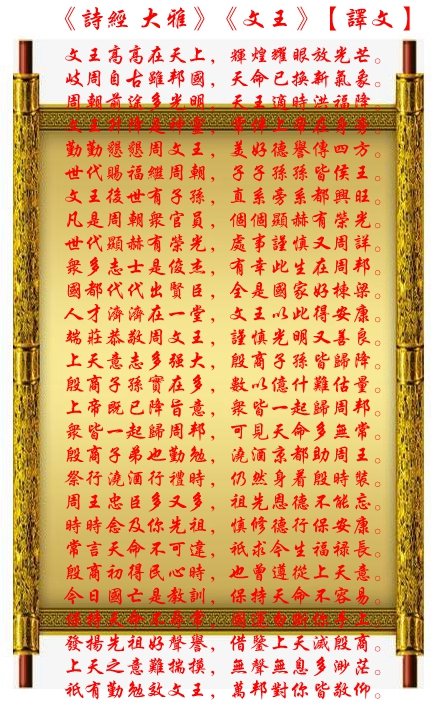 《詩經 大雅》《文王》【譯文】
文王高高在天上，輝煌耀眼放光芒。
岐周自古雖邦國，天命已換新氣象。
周朝前途多光明，天王適時洪福隆
文王
勤勤懇懇周文王，美好德譽傳四方。
世代賜福繼周朝，子子孫孫皆侯王。
文王後世有子孫，直系旁系都興旺。
凡是周朝衆官員，個個顯赫有榮光。
世代顯赫有榮光，處事謹慎又周詳。
衆多志士是俊杰，有幸此生在周邦。
國都代代出賢臣，全是國家好棟梁。
人才濟濟在一堂，文王以此得安康。
端莊恭敬周文王，謹慎光明又善良。
上天意志多强大，殷商子孫皆歸降。
殷商子孫實在多，數以億什難估量。
上帝既已降旨意，衆皆一起歸周邦。
衆皆一起歸周邦，可見天命多無常。
殷商子弟也勤勉，澆酒京都助周王。
祭行澆酒行禮時，仍然身着殷時裝。
周王忠臣多又多，祖先恩德不能忘。
時時念及你先祖，慎修德行保安康。
常言天命不可違，祇求今生福禄長。
殷商初得民心時，也曾遵從上天意。
今日國亡是教訓，保持天命不容易。
發揚先祖好聲譽，借鑒上天滅殷商。
上天之意難揣摸，無聲無息多渺茫。
祇有勤勉效文王，萬邦對你皆敬仰。